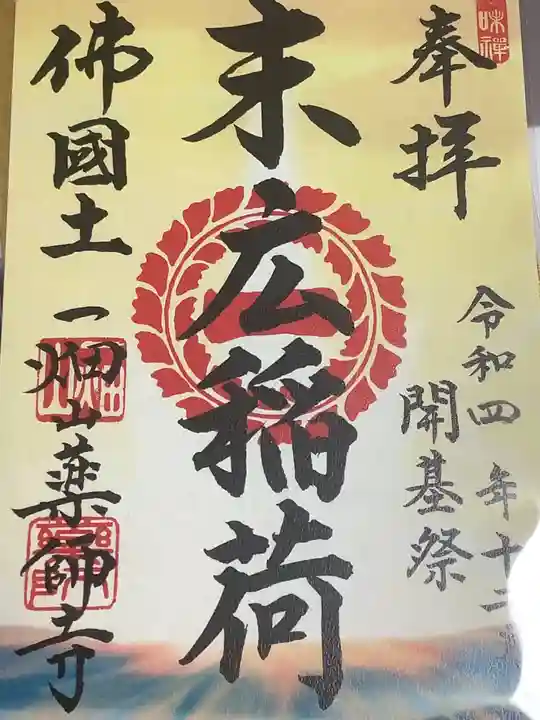 奉拝
令和四年十二
開基祭
末広稲荷
佛國土
一畑山薬師寺